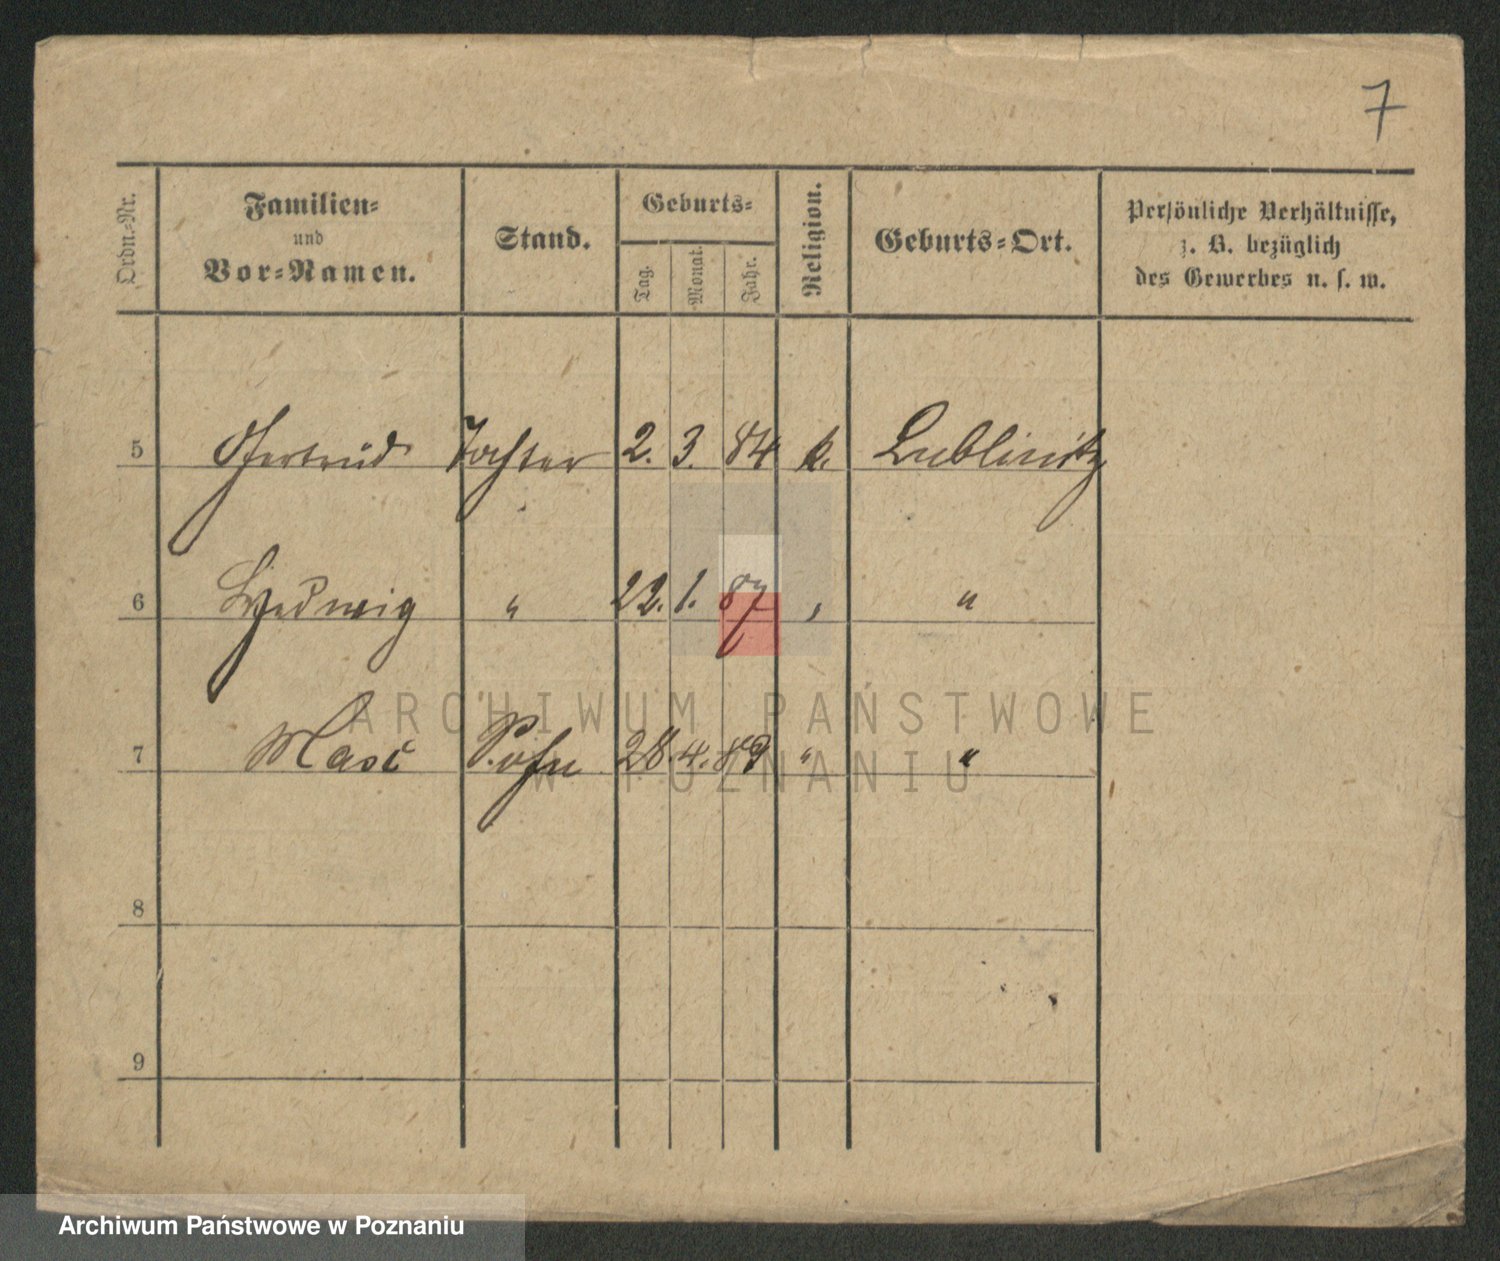 7
Ordn.-Nr. Familien- und Vor-Namen. Stand. Geburts- Tag. Monat. Jahr. Religion. Geburts-Ort. Persönliche Verhältnisse, z. B. bezüglich des Gewerbes u. s. w.
5 Gertrud Tochter 2. 3. 84 k. Lublinitz
6 Hedwig " 22. 1. 87 " "
7 Sohn 28. 4. 89 " "
8
9
ARCHIWUM PAŃSTWOWE
W POZNANIU
Archiwum Państwowe w Poznaniu